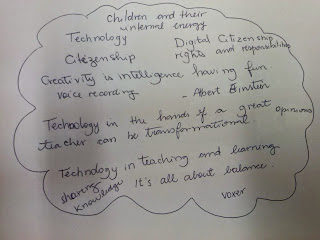 children and their
internal energy
Technology
Digital Citizenship
Citizenship
rights and responsibilities
Creativity is intelligence having fun
voice recording
- Albert Einstein
Technology in the hands of a great
opinions
teacher can be transformational.
Technology in teaching and learning
sharing
knowledge
It's all about balance.
voxer